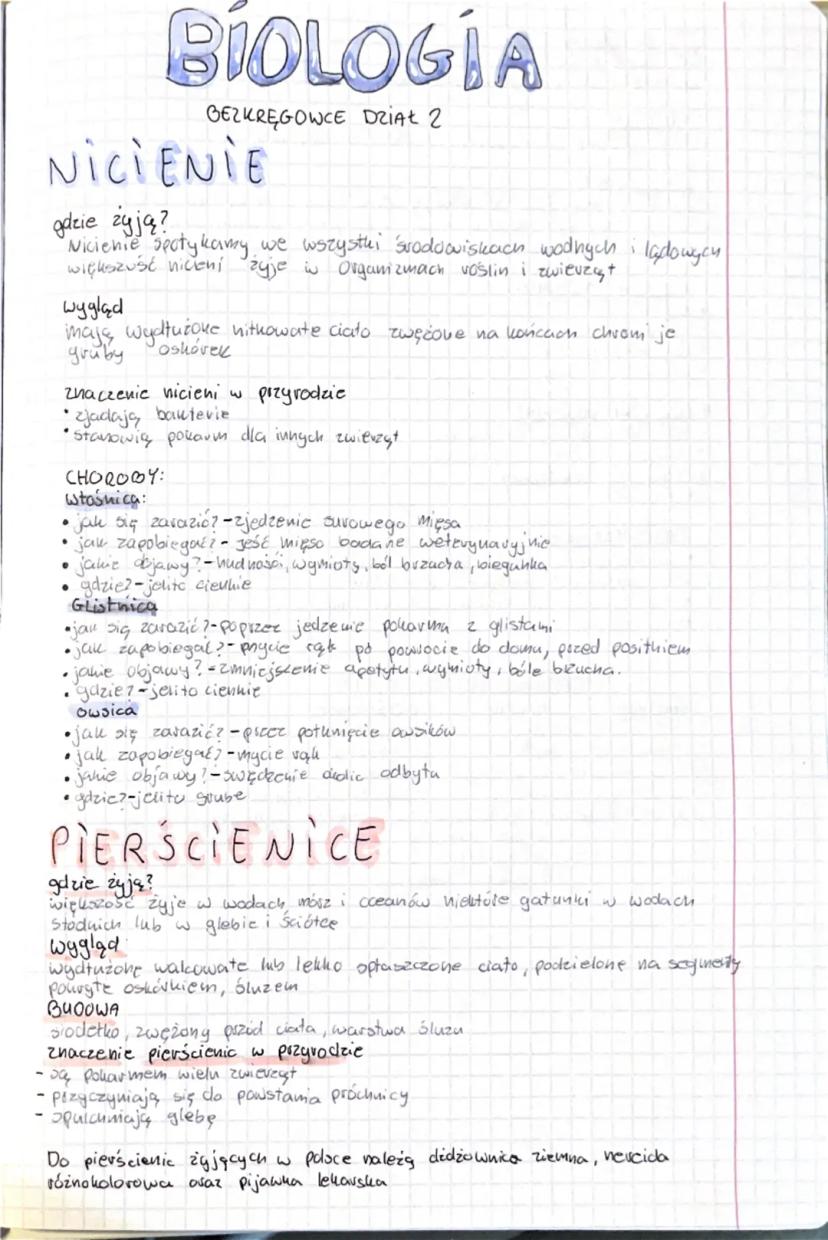 BIOLOGIA
BEZKRĘGOWCE DZIAŁ 2
NICIENIE
gdzie żyją?
Nicienie spotykamy we wszystki środowiskach wodnych i lądowych
większość nicieni żyje w organizmach roślin i zwierząt
wygląd
mają wydłużone nitkowate ciało zwężone na końcach chroni je
gruby oskórek
znaczenie nicieni w przyrodzie
• zjadają bakterie
• stanowią pokarm dla innych zwierząt
CHOROBY:
włośnica:
• jak się zarazić? - zjedzenie surowego mięsa
• jak zapobiegać? - jeść mięso badane weterynaryjnie
• jakie objawy? - nudności, wymioty, ból brzucha, biegunka
• gdzie? - jelito cienkie
Glistnica
• jak się zarazić? - poprzez jedzenie pokarmu z glistami
• jak zapobiegać? - mycie rąk po powrocie do domu, przed posiłkiem
• jakie objawy? - zmniejszenie apetytu, wymioty, bóle brzucha.
• gdzie? - jelito cienkie
owsica
• jak się zarazić? - przez połknięcie owsików
• jak zapobiegać? - mycie rąk
• jakie objawy? - swędzenie okolic odbytu
• gdzie? - jelito grube
PIERŚCIENICE
gdzie żyją?
większość żyje w wodach mórz i oceanów niektóre gatunki w wodach
słodkich lub w glebie i ściółce
wygląd
wydłużone walcowate lub lekko opłaszczone ciało, podzielone na segmenty
pokryte oskórkiem, śluzem
BUDOWA
siodełko, zwężony przód ciała, warstwa śluzu
znaczenie pierścienic w przyrodzie
- są pokarmem wielu zwierząt
- przyczyniają się do powstania próchnicy
- spulchniają glebę
Do pierścienic żyjących w polsce należą dżdżownica ziemna, nereida
różnokolorowa oraz pijawka lekarska